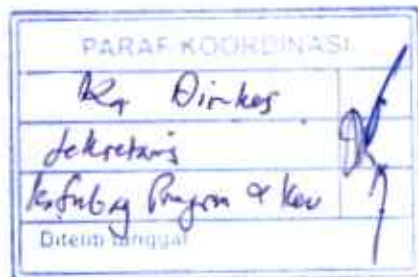 PARAF KOORDINASI
Ka Dinkes
Sekretaris
Kasubag Program & Keu
Diteliti tanggal